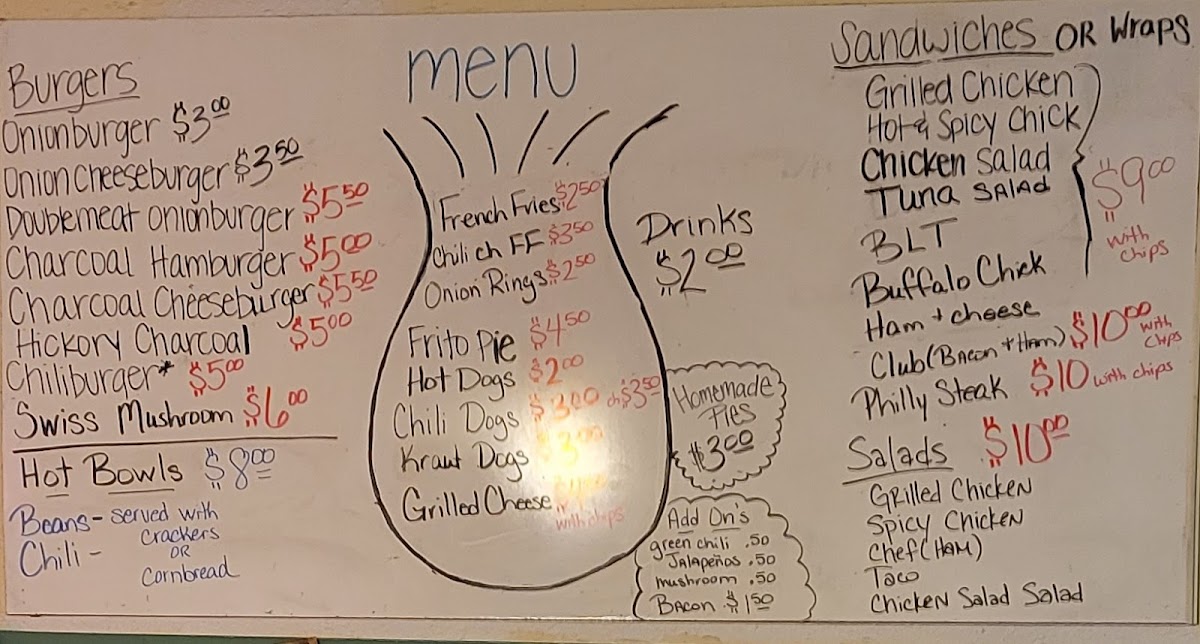 menu
Burgers
Onionburger $3.00
Onion Cheeseburger $3.50
Doublemeat Onionburger $5.50
Charcoal Hamburger $5.00
Charcoal Cheeseburger $5.50
Hickory Charcoal $5.00
Chiliburger* $5.00
Swiss Mushroom $6.00
Hot Bowls $8.00
Beans - served with
Crackers
OR
Cornbread
Chili -
French Fries $2.50
Chili ch FF $3.50
Onion Rings $2.50
Frito Pie $4.50
Hot Dogs $2.00
Chili Dogs $3.00 ch $3.50
Kraut Dogs $3.00
Grilled Cheese
with chips
Drinks
$2.00
Homemade
Pies
$3.00
Add On's
green chili .50
Jalapeños .50
mushroom .50
Bacon $1.50
Sandwiches OR Wraps
Grilled Chicken
Hot & Spicy Chick
Chicken Salad
Tuna Salad
BLT
Buffalo Chick
Ham + cheese
$9.00
with
chips
Club (Bacon + Ham) $10.00 with chips
Philly Steak $10 with chips
Salads $10.00
Grilled Chicken
Spicy Chicken
Chef (Ham)
Taco
Chicken Salad Salad